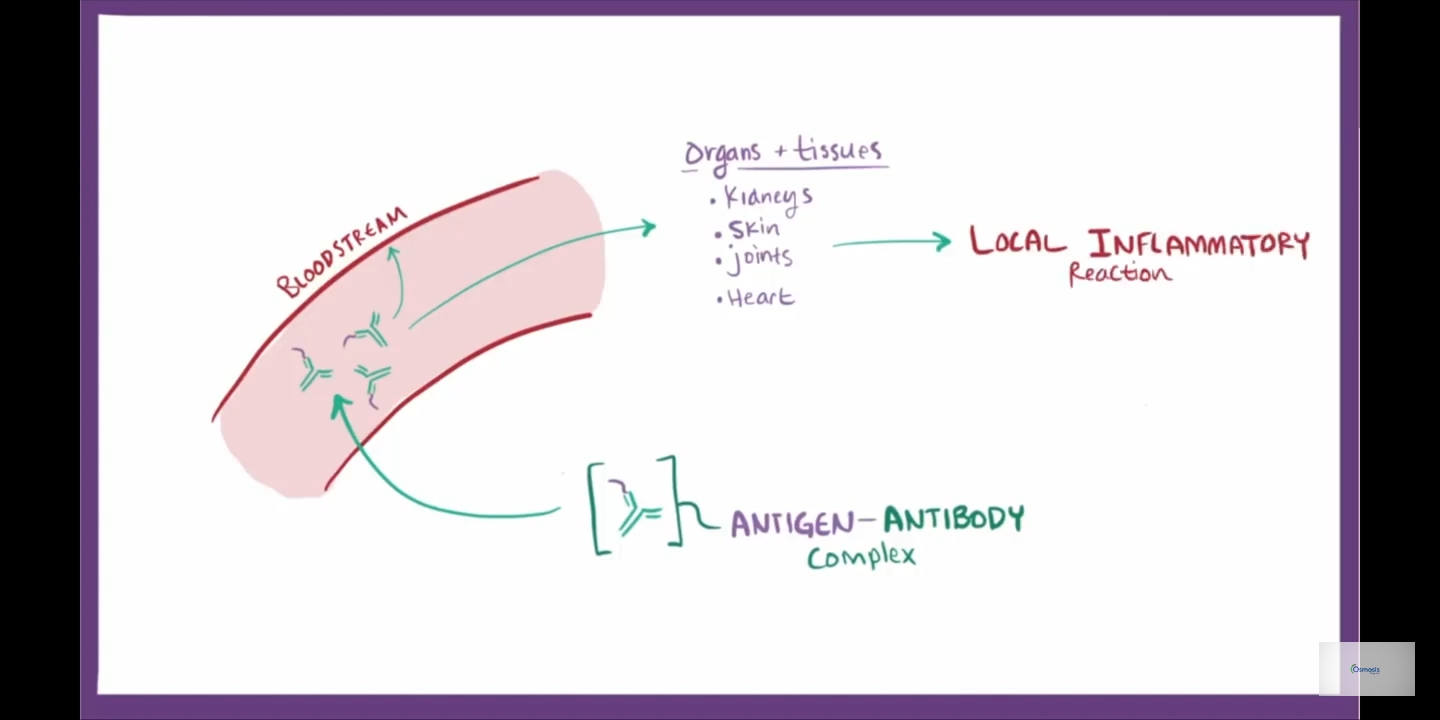 BLOODSTREAM
Organs + tissues
• Kidneys
• Skin
• joints
• Heart
LOCAL INFLAMMATORY
Reaction
ANTIGEN-ANTIBODY
Complex
Osmosis